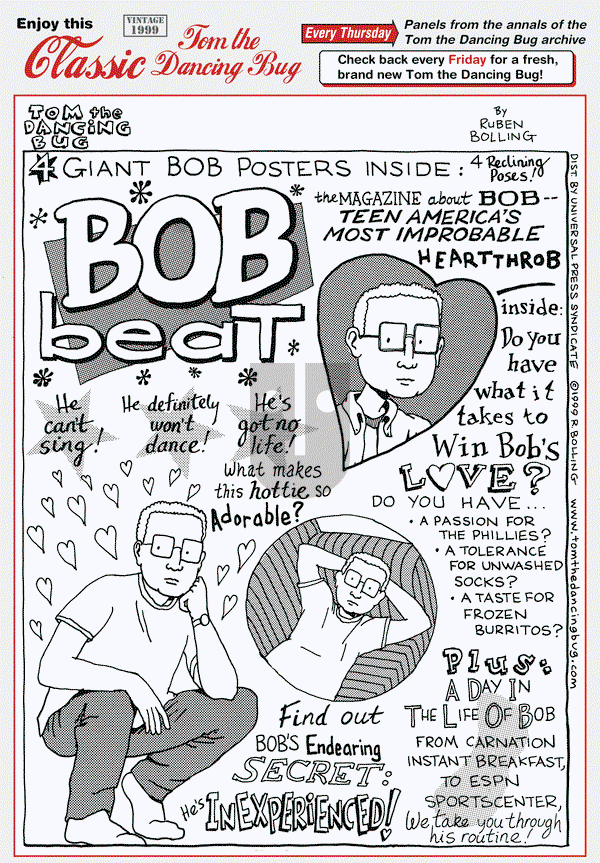 Enjoy this
VINTAGE
1999
Classic
Tom the
Dancing Bug
Every Thursday
Panels from the annals of the
Tom the Dancing Bug archive
Check back every Friday for a fresh,
brand new Tom the Dancing Bug!
TOM the
DANCING
BUG
By
RUBEN
BOLLING
4 GIANT BOB POSTERS INSIDE: 4 Reclining
Poses!
BOB
beaT
the MAGAZINE about BOB--
TEEN AMERICA'S
MOST IMPROBABLE
HEARTTHROB
inside:
Do you
have
what it
takes to
Win Bob's
LOVE?
He
can't
sing!
He definitely
won't
dance!
He's
got no
life!
What makes
this hottie so
Adorable?
DO YOU HAVE...
• A PASSION FOR
THE PHILLIES?
• A TOLERANCE
FOR UNWASHED
SOCKS?
• A TASTE FOR
FROZEN
BURRITOS?
Find out
BOB'S Endearing
SECRET:
He's INEXPERIENCED!
Plus:
A DAY IN
THE LIFE OF BOB
FROM CARNATION
INSTANT BREAKFAST,
TO ESPN
SPORTSCENTER,
We take you through
his routine!
DIST. BY UNIVERSAL PRESS SYNDICATE ©1999 R. BOLLING www.tomthedancingbug.com